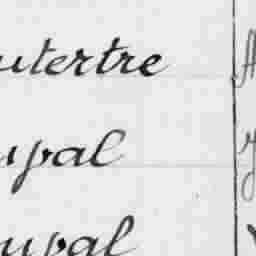 utertre
upal
upal